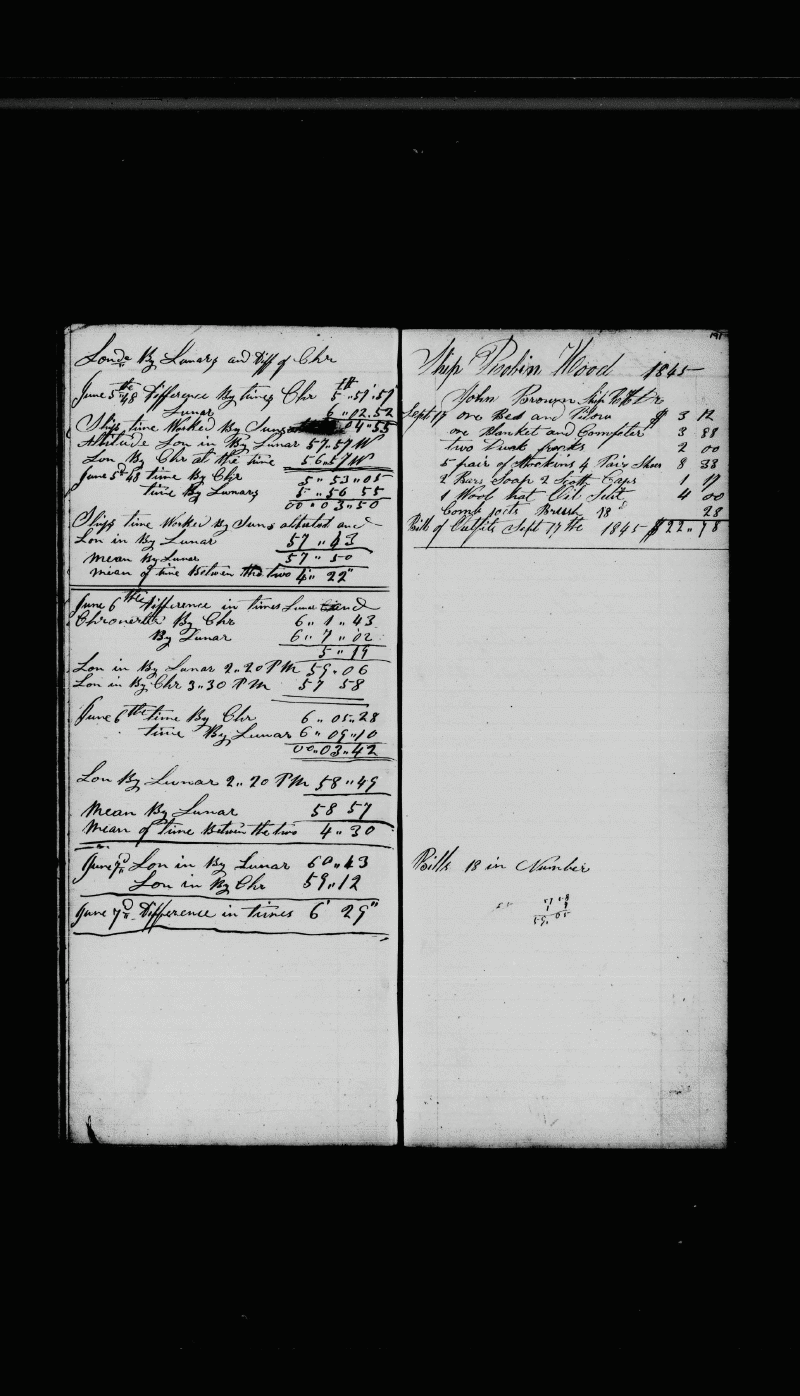 Lond By Lunars and Diff of Chr
June 5th 48 Difference By times Chr 5 .. 57 .. 57
Lunar 6 .. 02 .. 52
04 .. 55
Ships time Worked By Suns
Altitude Lon in By Lunar 57 .. 57 W
Lon By Chr at the time 56 .. 57 W
June 5d 48 time By Chr 5 .. 53 .. 05
time By Lunars 5 .. 56 55
00 .. 03 .. 50
Ships time Worked By Suns altitude and
Lon in By Lunar 57 .. 43
Mean By Lunar 57 .. 50
Mean of time Between the two 4' .. 22"
June 6the Difference in times Lunar and
Chronerter By Chr 6 .. 1 .. 43
By Lunar 6 .. 7 .. 02
5 .. 19
Lon in By Lunar 2 .. 20 PM 59 .. 06
Lon in By Chr 3 .. 30 PM 57 58
June 6the time By Chr 6 .. 05 .. 28
time By Lunar 6 .. 09 .. 10
00 .. 03 .. 42
Lon By Lunar 2 .. 20 PM 58 .. 49
Mean By Lunar 58 57
Mean of time Between the two 4 .. 30
June 7d Lon in By Lunar 60 .. 43
Lon in By Chr 59 .. 12
June 7d Difference in times 6' 29"
191
Ship Robin Hood 1845
John Brown Ship
Sept 17 one Bed and Pilow $ 3 12
one Blanket and Comfoter 3 88
two Duck frocks 2 00
5 pair of Stockins 4 Pair Shoes 8 33
2 Bars Soap 2 Scotch Caps 1 17
1 Wool hat Oil Suit 4 00
Comb Brush 18 28
Bill of Outfits Sept 17the 1845 $22 .. 78
Bills 18 in Number
57 58
59 .. 05